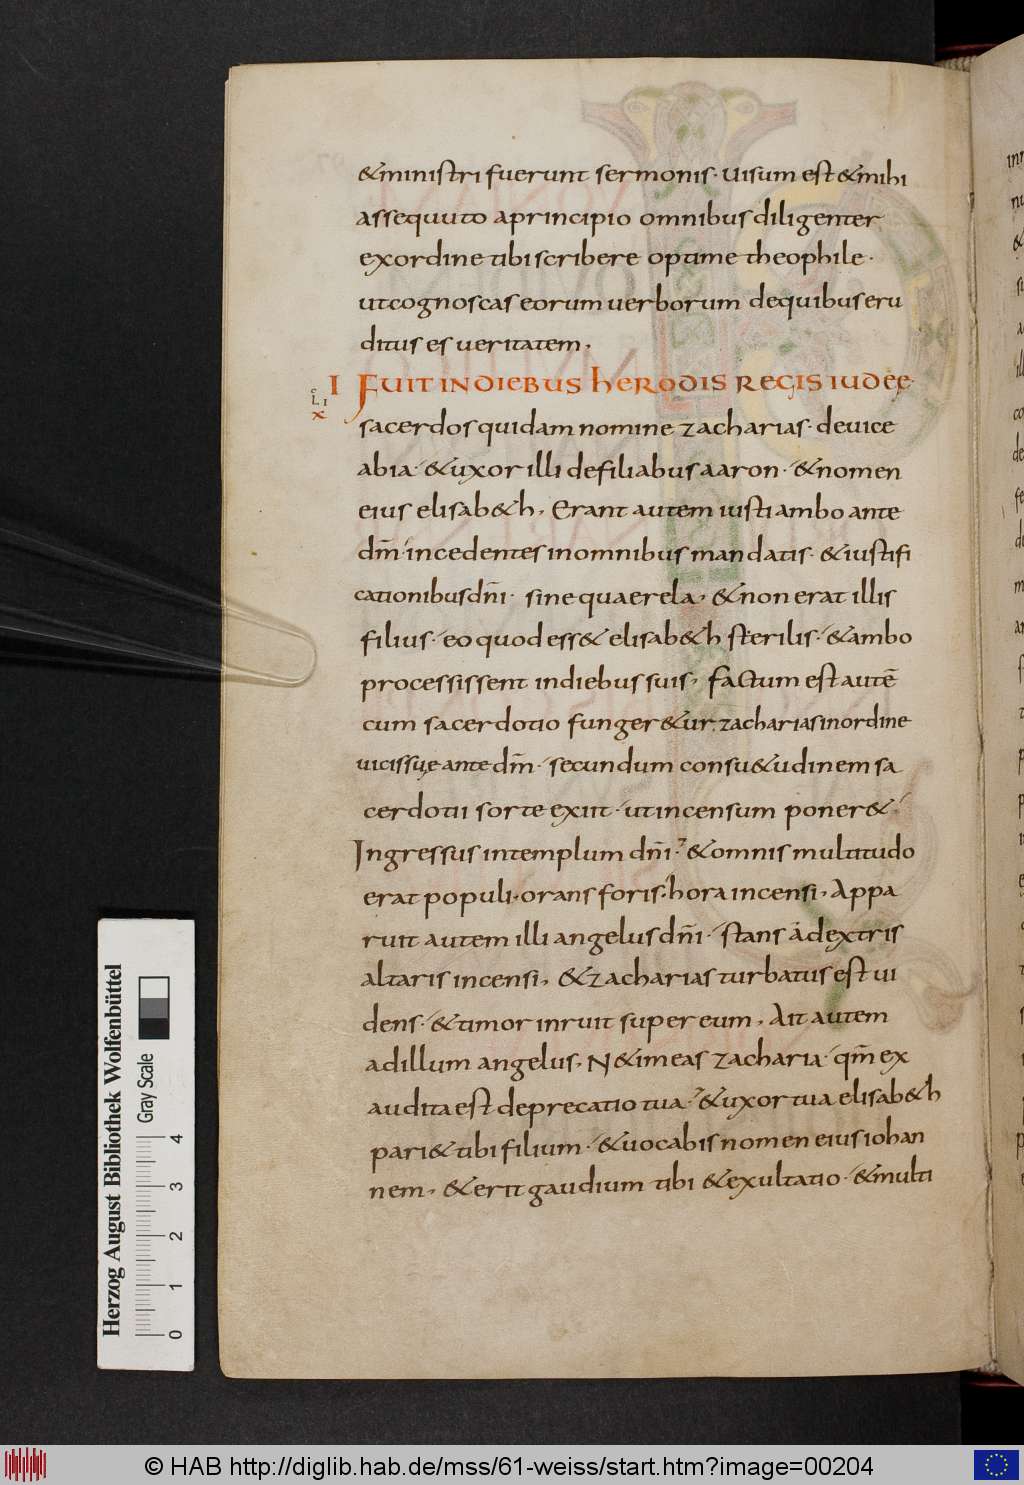 &ministri fuerunt sermonis· uisum est &mihi
assequuto aprincipio omnibus diligenter
exordine tibi scribere optime theophile·
ut cognoscas eorum uerborum dequibus eru
ditus es ueritatem,
I FUIT IN DIEBUS HERODIS REGIS IUDEĘ·
c
L I
x
sacerdos quidam nomine zacharias· deuice
abia· &uxor illi defiliabus aaron· &nomen
eius elisab&h, Erant autem iusti ambo ante
dm̅· incedentes inomnibus mandatis· &iustifi
cationibus dn̅i· sine quaerela, &non erat illis
filius· eo quod ess& elisab&h sterilis· &ambo
processissent indiebus suis, factum est autē
cum sacerdotio funger&ur zacharias inordine
uicissuę ante dm̅· secundum consu&udinem sa
cerdotii sorte exiit· ut incensum poner&·
Ingressus intemplum dn̅i· &omnis multitudo
erat populi· orans foris· hora incensi, Appa
ruit autem illi angelus dn̅i· stans adextris
altaris incensi, &zacharias turbatus est ui
dens· &timor inruit super eum, Ait autem
adillum angelus, N&imeas zacharia· qm̅ ex
audita est deprecatio tua· &uxor tua elisab&h
pari& tibi filium· &uocabis nomen eius iohan
nem, &erit gaudium tibi &exultatio· &multi
Herzog August Bibliothek Wolfenbüttel
Gray Scale
0 1 2 3 4
© HAB http://diglib.hab.de/mss/61-weiss/start.htm?image=00204